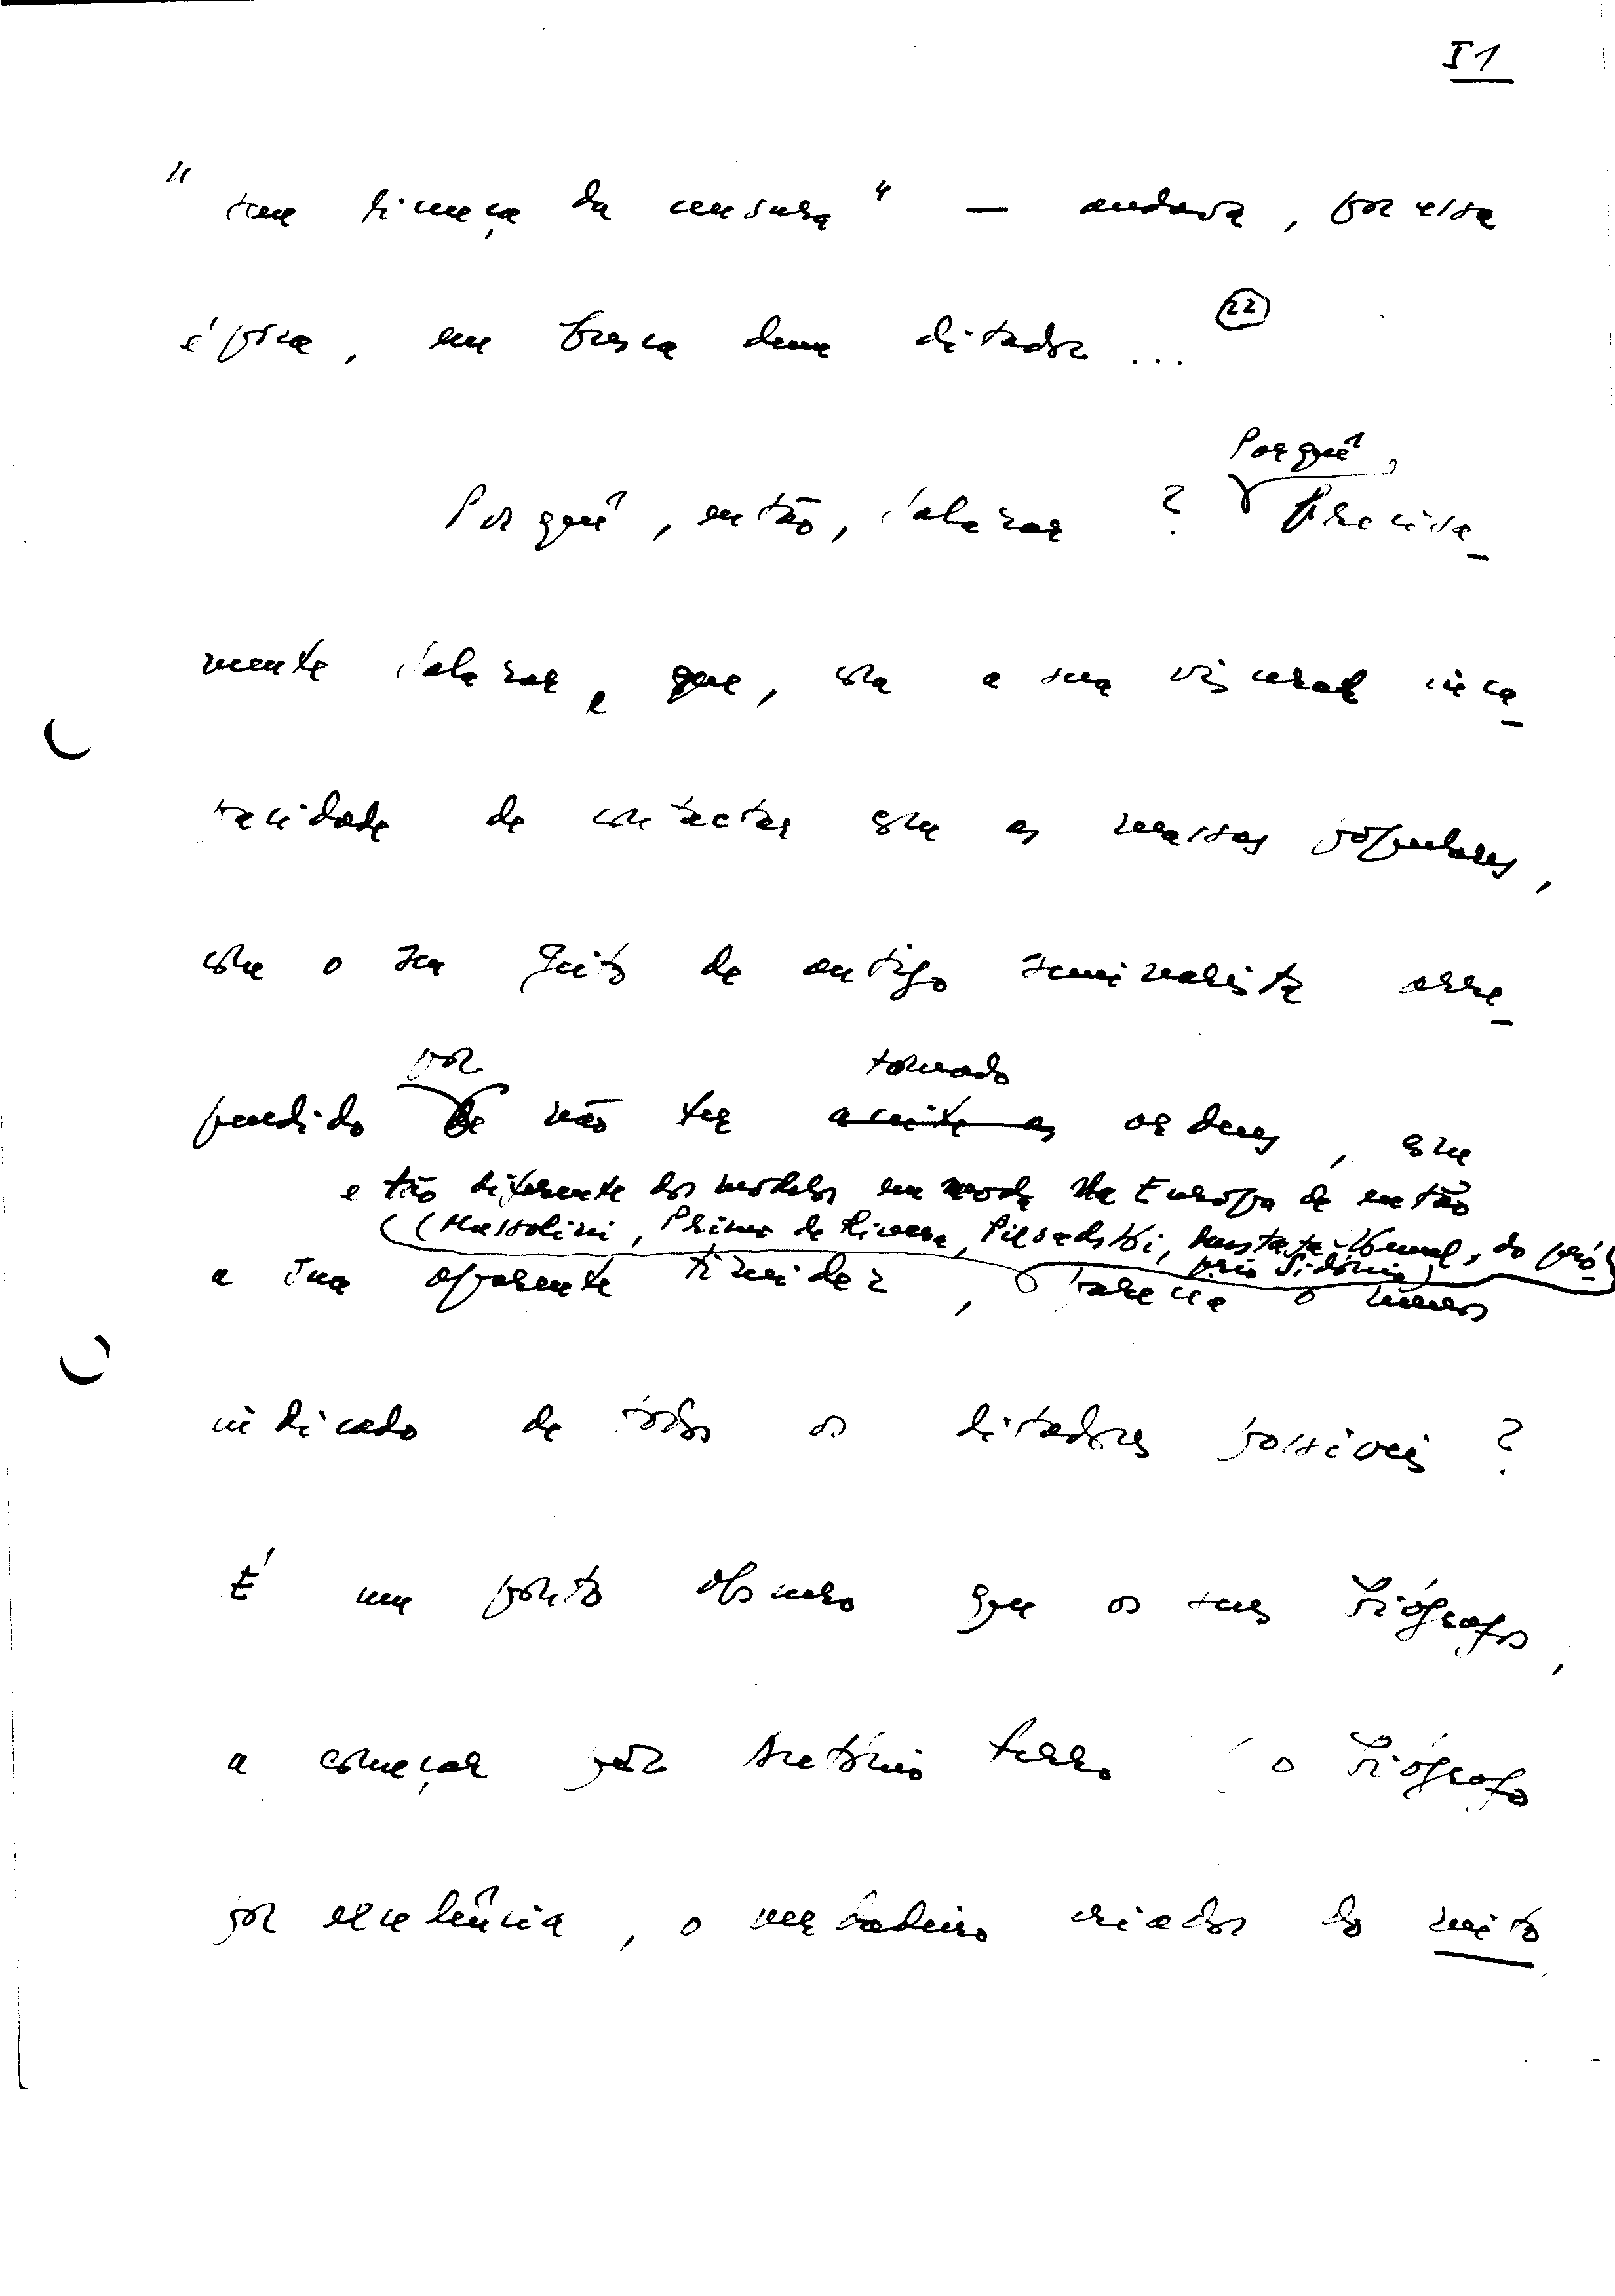 I 1
"sem licença da censura" — andava, por essa
época, em busca dum ditador... (22)
Porquê,
Porquê, então, Salazar? Precisa-
mente Salazar, que, com a sua visceral inca-
pacidade de contactar com as massas populares,
com o seu jeito de antigo seminarista arre-
por tomado
pendido de não ter aceite as ordens, com
e tão diferente dos modelos em moda na Europa de então
(Mussolini, Primo de Rivera, Pilsudski, Mustafa-Kemal, do pró-
prio Sidónio)
a sua aparente timidez, parecia o menos
indicado de todos os ditadores possíveis?
É um ponto obscuro que os seus biógrafos,
a começar por António Ferro (o biógrafo
por excelência, o verdadeiro criador do mito